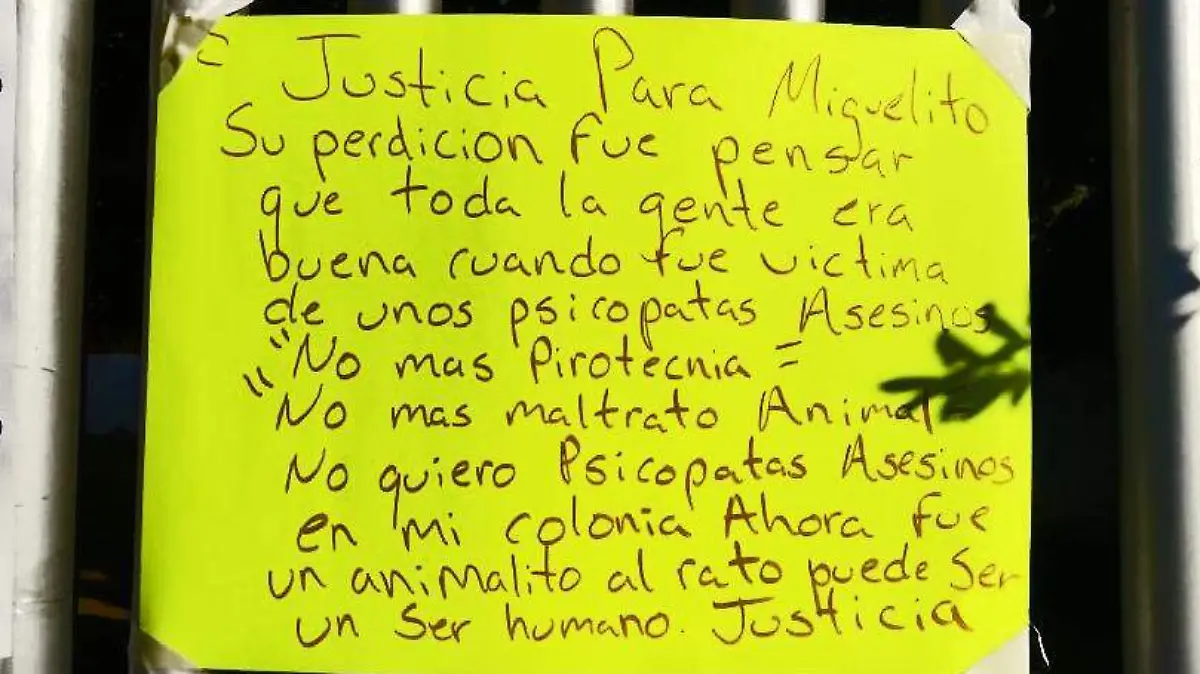 = Justicia Para Miguelito
Su perdicion fue pensar
que toda la gente era
buena cuando fue victima
de unos psicopatas Asesinos
"No mas Pirotecnia =
"No mas maltrato Animal -
No quiero Psicopatas Asesinos
en mi colonia Ahora fue
un animalito al rato puede Ser
un Ser humano. Justicia